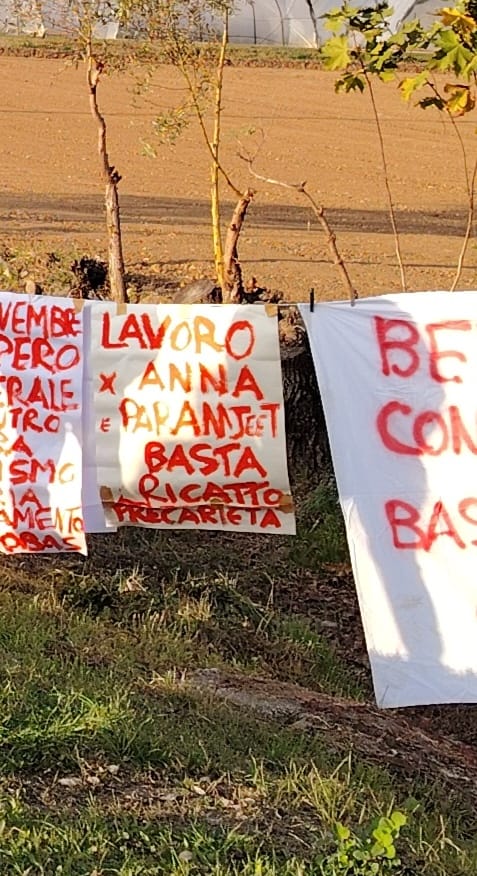 VEMBRE
PERO
ERALE
NTRO
RA
ISMO
IA
AMENTO
OBAS
LAVORO
X ANNA
E PARAMJEET
BASTA
RICATTO
PRECARIETA
BE
CON
BAS